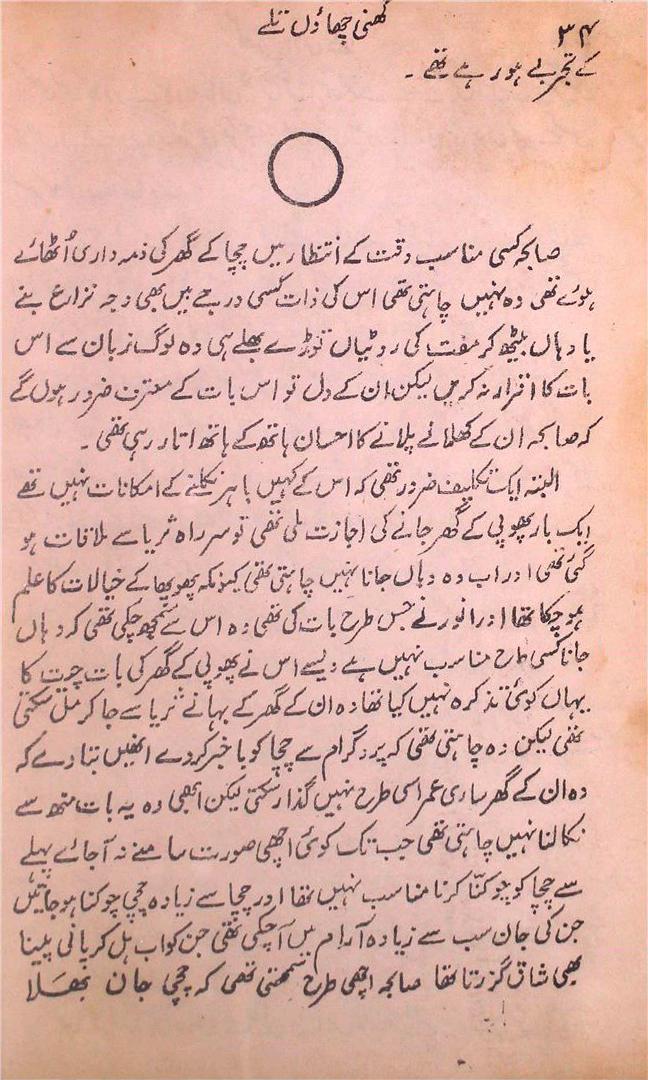 ۳۴
گھنی چھاؤں تلے
کے تجربے ہو رہے تھے۔
صابحہ کسی مناسب وقت کے انتظار میں چچا کے گھر کی ذمہ داری اُٹھائے
ہوئے تھی وہ نہیں چاہتی تھی اس کی ذات کسی درجے میں بھی وجہ نزارع بنے
یا وہاں بیٹھ کر مفت کی روٹیاں توڑے بھلے ہی وہ لوگ زبان سے اس
بات کا اقرار نہ کریں لیکن ان کے دل تو اس بات کے معترف ضرور ہوں گے
کہ صابحہ ان کے کھلائے پلائے کا احسان ہاتھ کے ہاتھ اتار رہی تھی۔
البتہ ایک تکلیف ضرور تھی کہ اس کے کہیں باہر نکلنے کے امکانات نہیں تھے
ایک بار پھوپی کے گھر جانے کی اجازت ملی تھی تو سر راہ ثریا سے ملاقات ہو
گئی تھی اور اب وہ وہاں جانا نہیں چاہتی تھی کیونکہ پھوپھا کے خیالات کا علم
ہو چکا تھا اور انور نے جس طرح بات کی تھی وہ اس سے سمجھ چکی تھی کہ وہاں
جانا کسی طرح مناسب نہیں ہے ویسے اس نے پھوپی کے گھر کی بات چیت کا
یہاں کوئی تذکرہ نہیں کیا تھا وہ ان کے گھر کے بہانے ثریا سے جا کر مل سکتی
تھی لیکن وہ چاہتی تھی کہ پروگرام سے چچا کو باخبر کر دے انھیں بتا دے کہ
وہ ان کے گھر ساری عمر اسی طرح نہیں گذار سکتی لیکن ابھی وہ یہ بات منھ سے
نکالنا نہیں چاہتی تھی جب تک کوئی اچھی صورت سامنے نہ آجائے پہلے
سے چچا کو چوکنّا کرنا مناسب نہیں تھا اور چچا سے زیادہ چچی چوکنا ہو جائیں
جن کی جان سب سے زیادہ آرام میں آ چکی تھی جن کو اب ہل کر پانی پینا
بھی شاق گزرتا تھا صابحہ اچھی طرح سمجھتی تھی کہ چچی جان بھلا